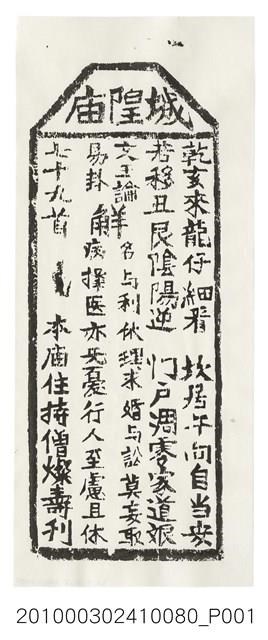 城隍庙
乾亥來龍仔細看 坎居午向自当安
若移丑艮陰陽逆 门户凋零家道艰
文王論 名与利依理求婚与訟莫妄取
易卦 解 疾擇医亦无憂行人至慮且休
七十九首 本庙住持僧燦壽刊
201000302410080_P001